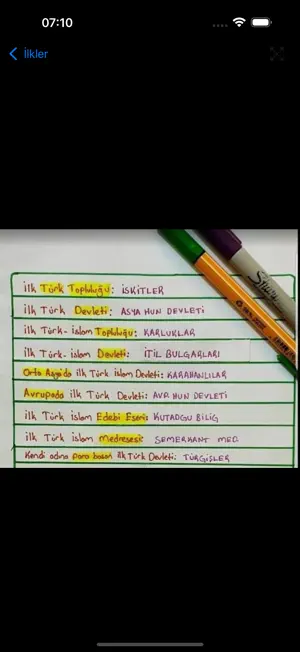 07:10
İlkler
ilk Türk Topluluğu: İSKİTLER
ilk Türk Devleti: ASYA HUN DEVLETİ
ilk Türk-islam Topluluğu: KARLUKLAR
ilk Türk-islam Devleti: İTİL BULGARLARI
Orta Asya'da ilk Türk islam Devleti: KARAHANLILAR
Avrupada ilk Türk Devleti: AVR HUN DEVLETİ
ilk Türk islam Edebi Eseri: KUTADGU BİLİG
ilk Türk islam medresesi: SEMERKANT MED.
Kendi adına para basan ilk Türk Devleti: TÜRGİŞLER
Sharpie